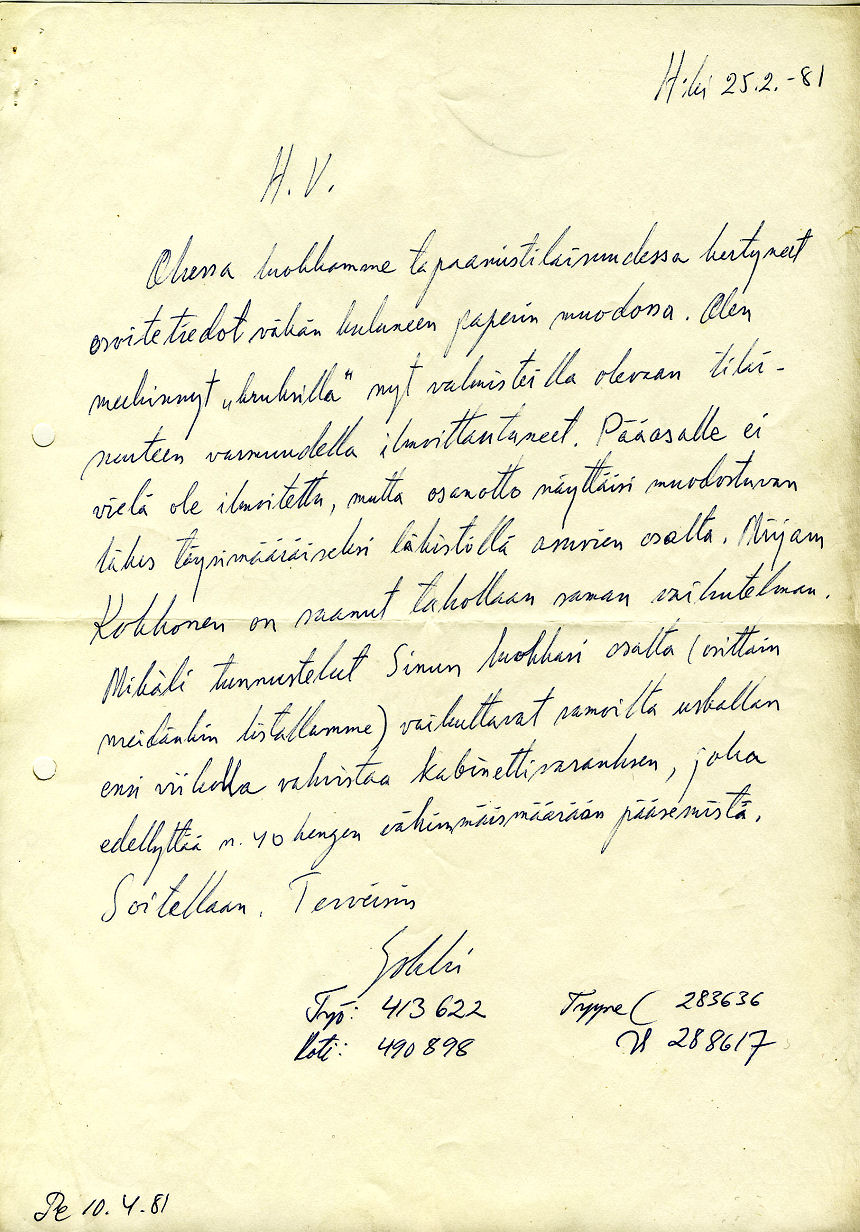 H:ki 25.2.-81
H.V.
Ohessa luokkamme tapaamistilaisuudessa kertyneet
osoitetiedot vähän kuluneen paperin muodossa. Olen
merkinnyt „kruksilla" nyt valmisteilla olevaan tilai-
suuteen varmuudella ilmoittautuneet. Pääosalle ei
vielä ole ilmoitettu, mutta osanotto näyttäisi muodostuvan
lähes täysimääräiseksi lähistöllä asuvien osalta. Mirjam
Kokkonen on saanut tahollaan saman vaikutelman.
Mikäli tunnustelut Sinun luokkasi osalta (osittain
meidänkin listallamme) vaikuttavat samoilta uskallan
ensi viikolla vahvistaa kabinettivarauksen, joka
edellyttää n. 40 hengen vähimmäismäärään pääsemistä.
Soitellaan. Terveisin
Työ: 413622 283636
Koti: 490898 288617
Pe 10.4.81